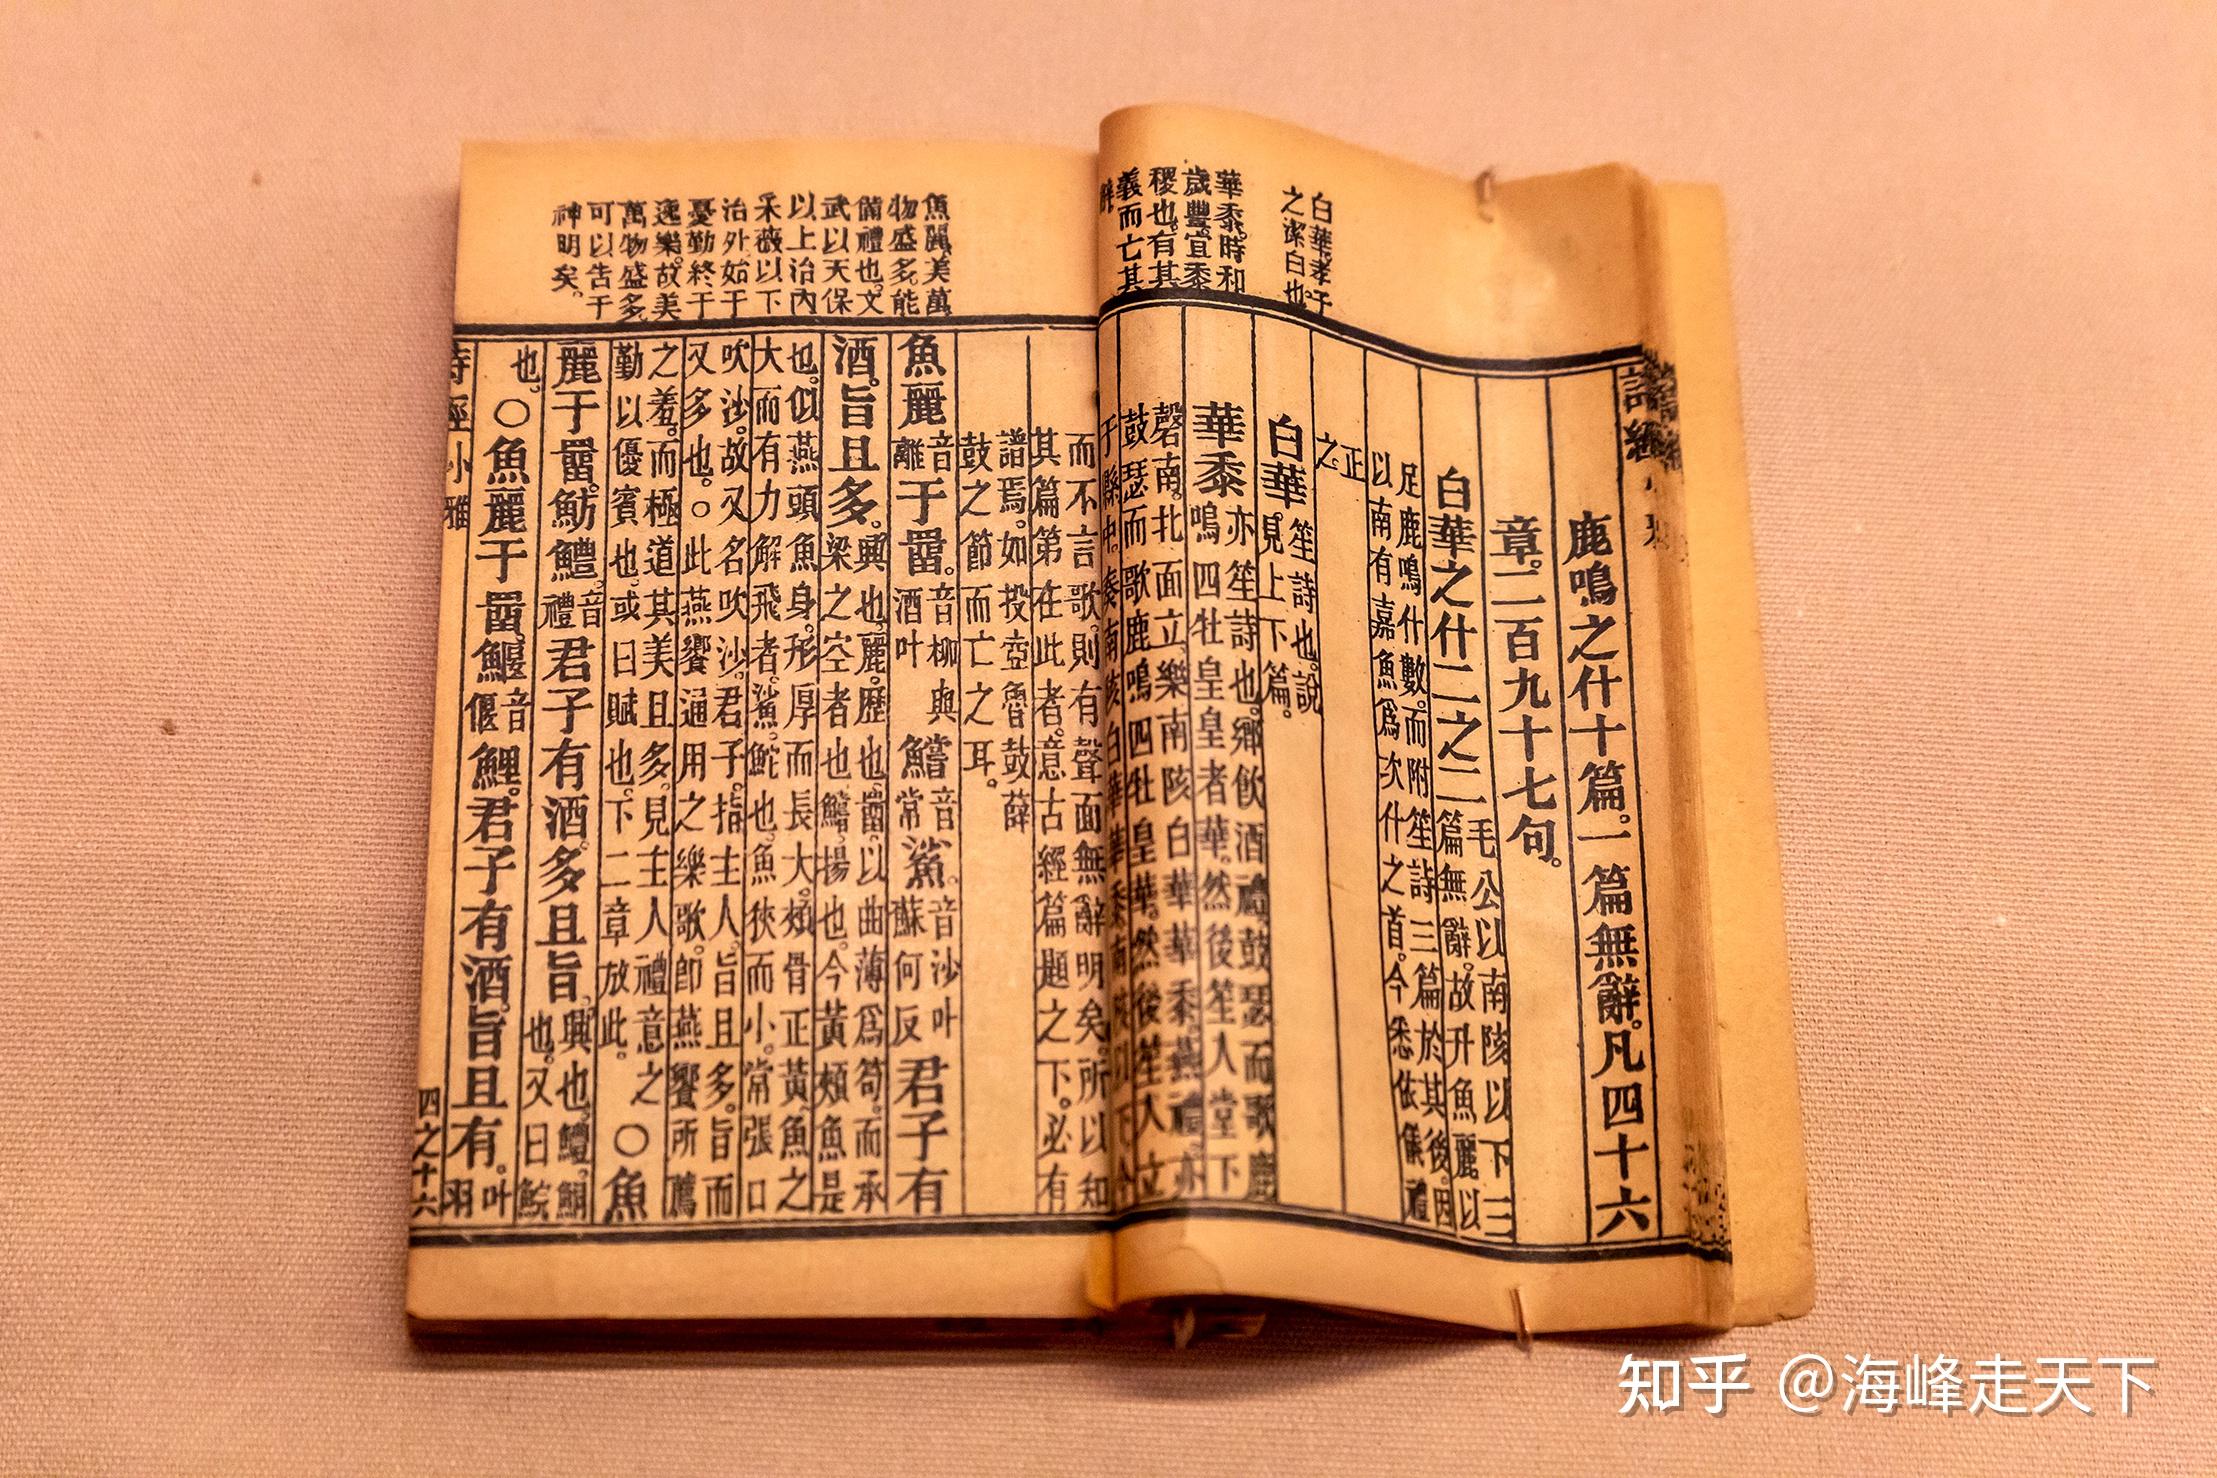 白華。孝子
之潔白也。
華黍。時和
歲豐。宜黍
稷也。有其
義而亡其
辭
詩經
鹿鳴之什十篇。一篇無辭。凡四十六
章。二百九十七句。
白華之什二之二 毛公以南陔以下三
篇無辭。故升魚麗以
足鹿鳴什數。而附笙詩三篇於其後。因
以南有嘉魚爲次什之首。今悉依儀禮
正
之。
白華。笙詩也。說
見上下篇。
華黍 亦笙詩也。鄉飲酒禮。鼓瑟而歌鹿
鳴四牡皇皇者華。然後笙入堂下
磬南。北面立。樂南陔白華華黍。燕禮。亦
鼓瑟而歌鹿鳴四牡皇華。然後笙入立
于縣中。奏南陔白華華黍。南陔以下今
魚麗。美萬
物盛多。能
備禮也。文
武以天保
以上治內
采薇以下
治外。始于
憂勤。終于
逸樂。故美
萬物盛多
可以告于
神明矣。
而不言歌。則有聲而無辭明矣。所以知
其篇第在此者。意古經篇題之下。必有
譜焉。如投壺魯鼓薛
鼓之節而亡之耳。
魚麗音離于罶。音柳與酒叶鱨音常鯊。音沙叶蘇何反君子有
酒。旨且多。興也。麗。歷也。罶。以曲薄爲笱。而承
梁之空者也。鱨。揚也。今黃頰魚是
也。似燕頭魚身。形厚而長大。頰骨正黃。魚之
大而有力解飛者。鯊。鮀也。魚狹而小。常張口
吹沙。故又名吹沙。君子。指主人。旨且多。旨而
又多也。○此燕饗通用之樂歌。卽燕饗所薦
之羞。而極道其美且多。見主人禮意之
勤以優賓也。或曰賦也。下二章放此。 ○魚
麗于罶。魴鱧。音禮君子有酒。多且旨。興也。鱧。鮦
也。又曰鯇
也。○魚麗于罶。鰋音偃鯉。君子有酒。旨且有。叶羽
詩經 小雅 四之十六
知乎 @海峰走天下